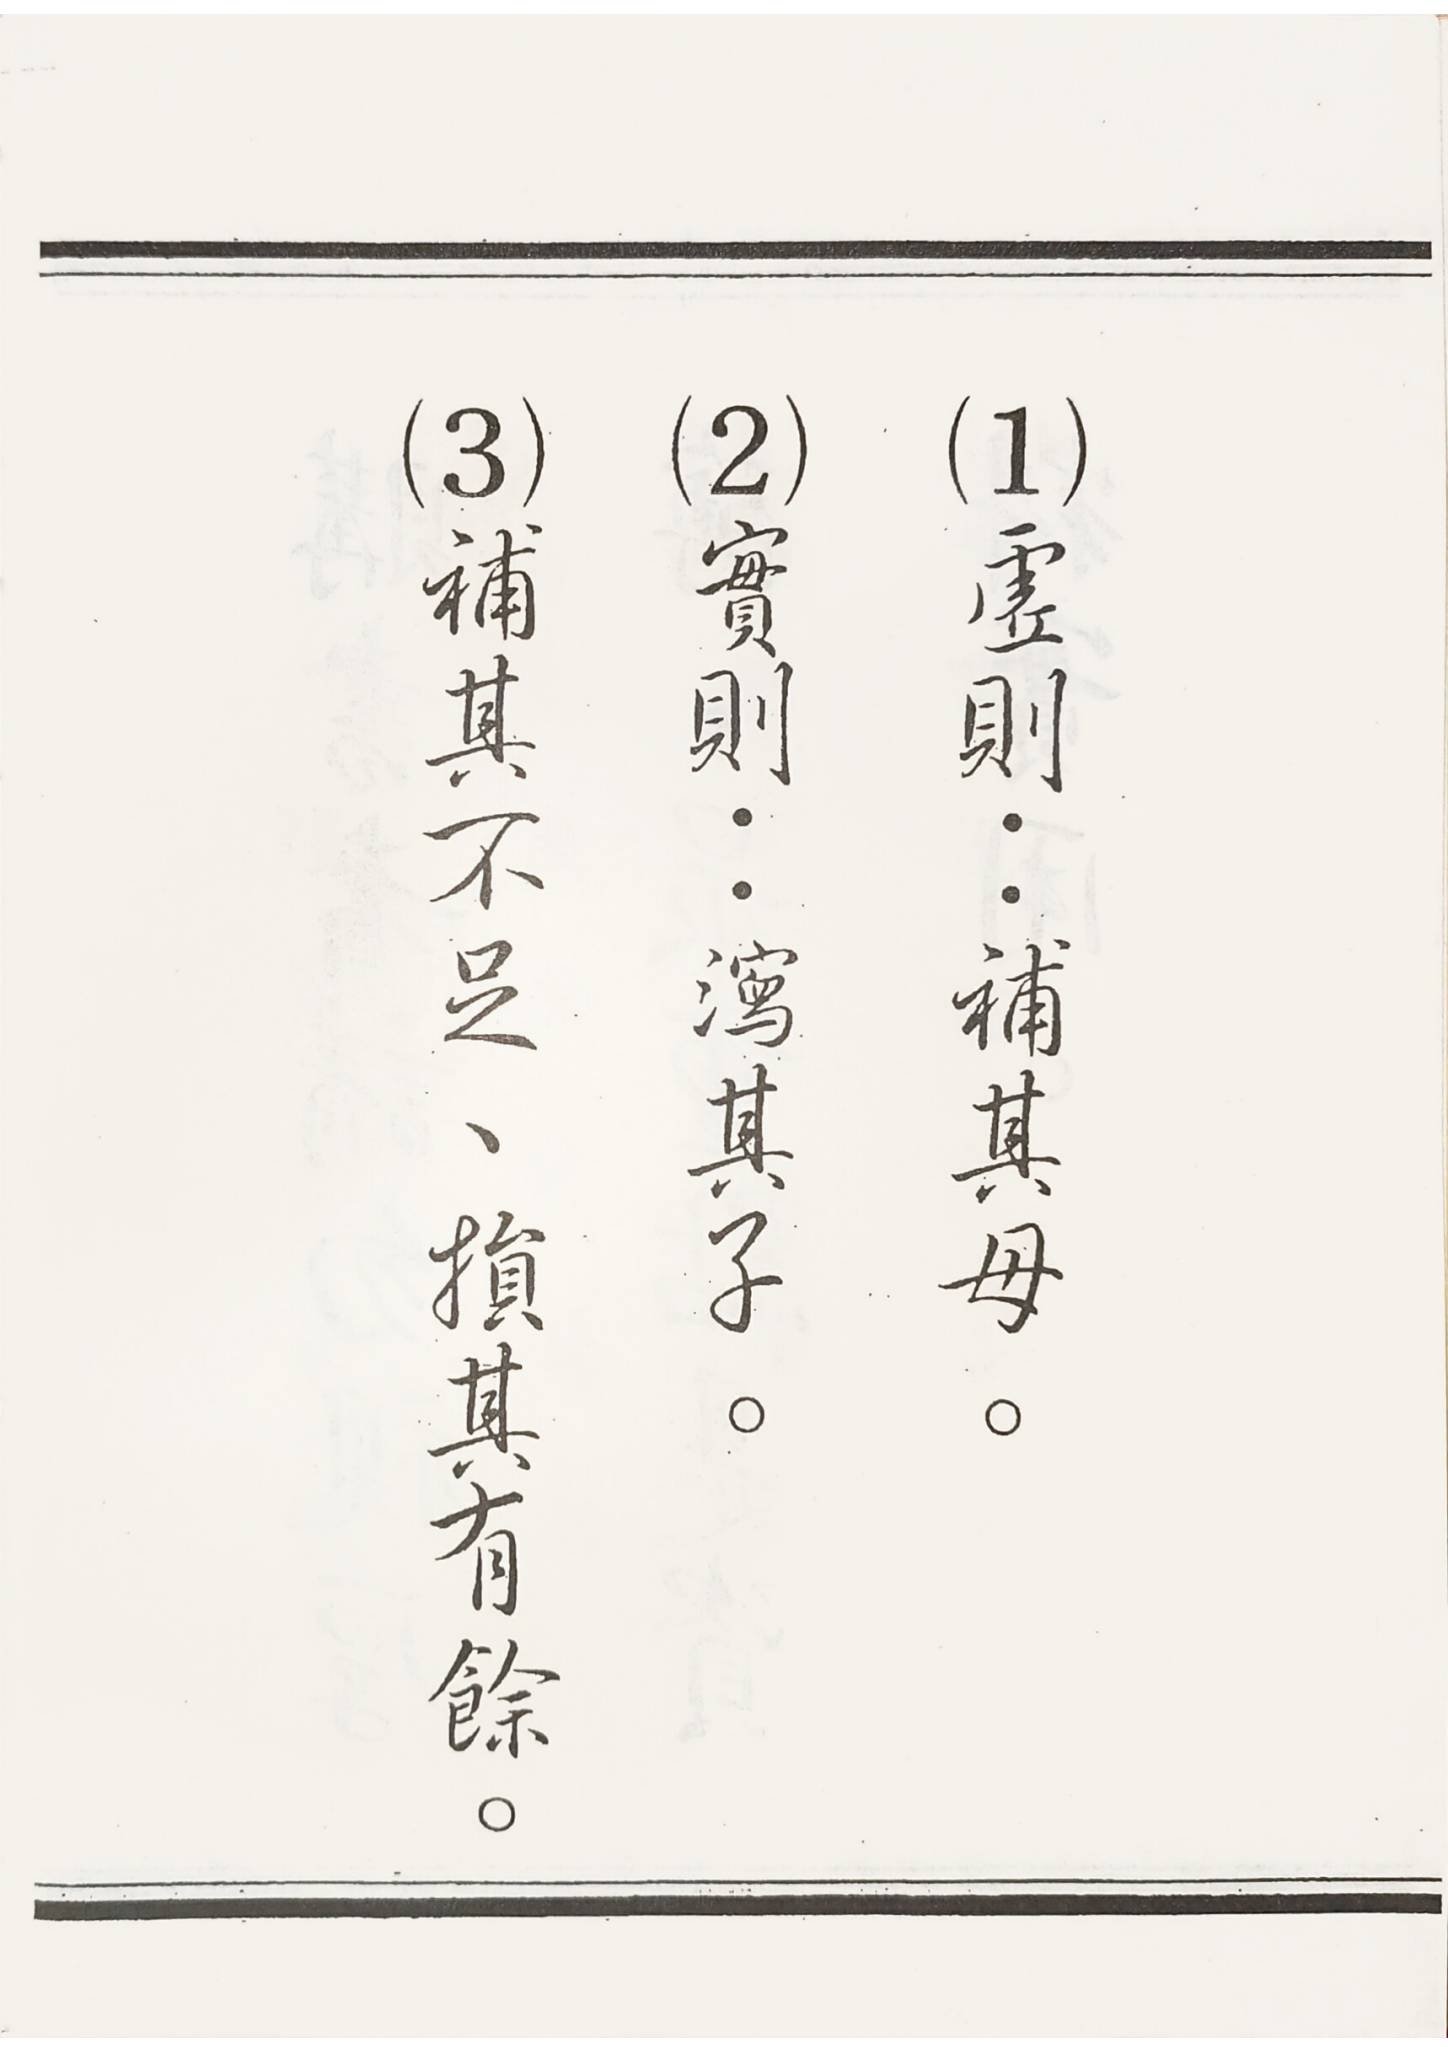 (1)虛則：補其母。
(2)實則：瀉其子。
(3)補其不足、損其有餘。